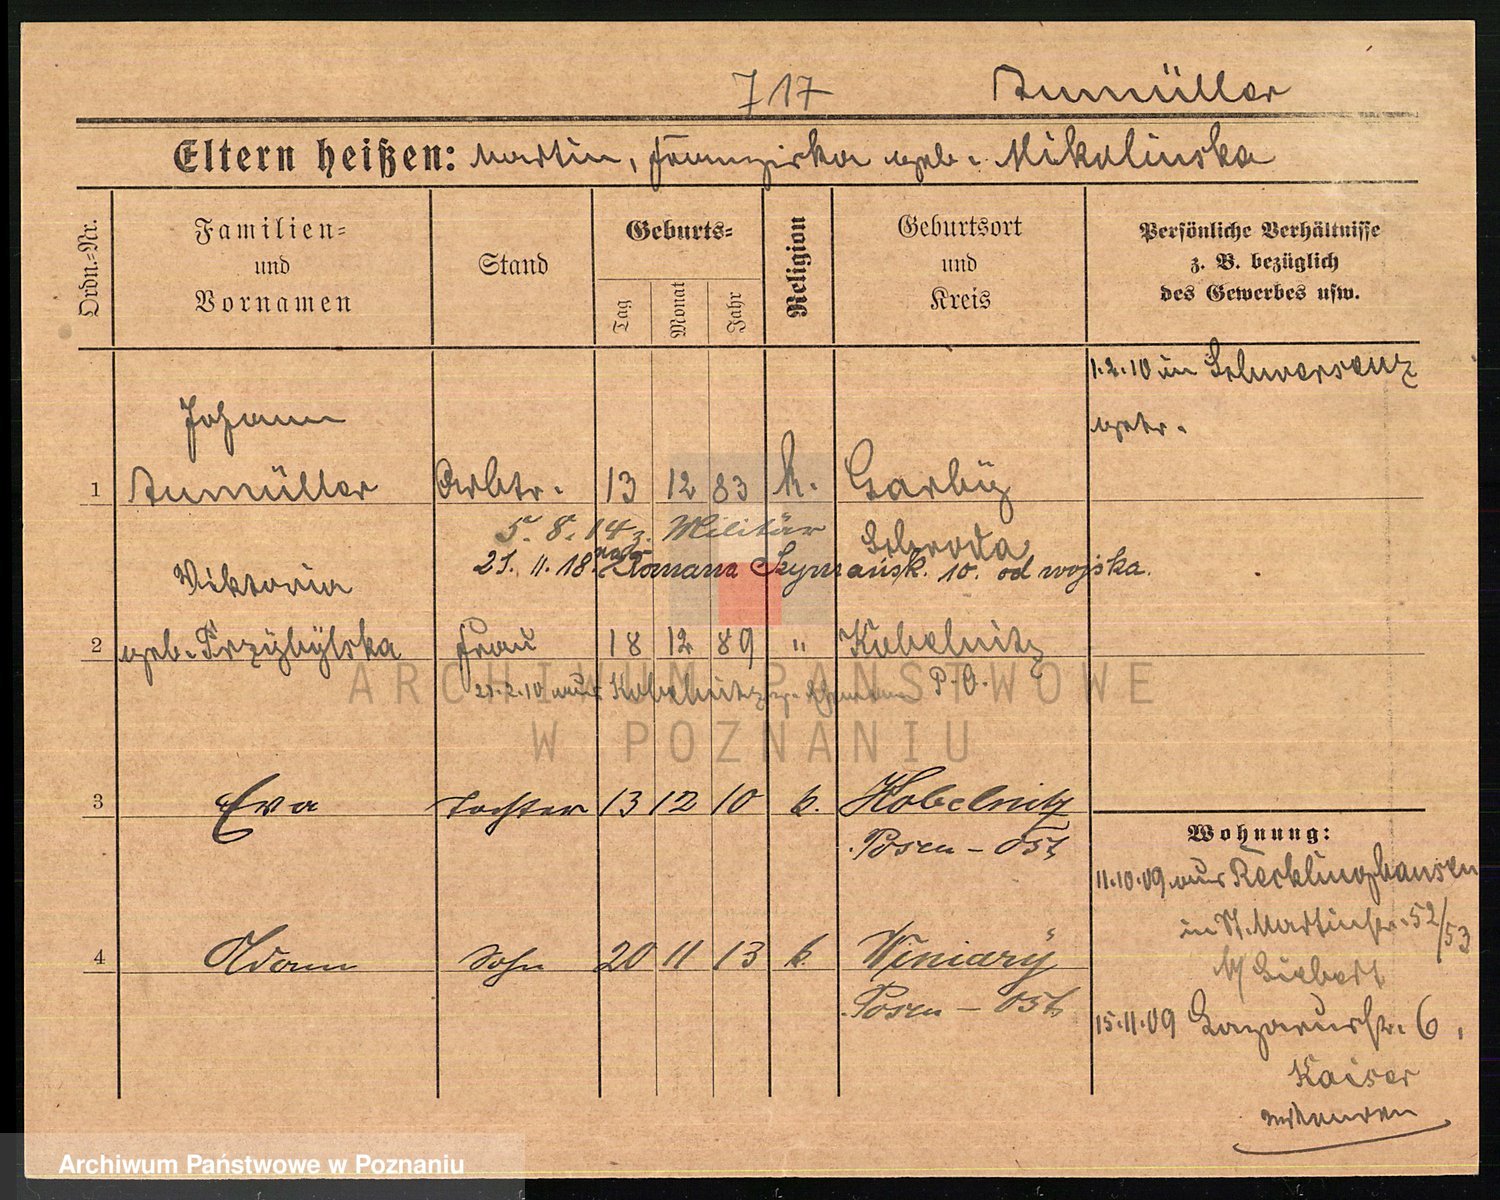 717 Aumüller
Eltern heißen: Martin, Franziska geb. Mikolinska
Ordn.-Nr.
Familien- und Vornamen
Stand
Geburts-
Tag
Monat
Jahr
Religion
Geburtsort und Kreis
Persönliche Verhältnisse
z. B. bezüglich
des Gewerbes usw.
1.2.10 in Schwersenz
getr.
Johann
1 Aumüller Arbtr. 13 12 83 k. Garbÿ
5. 8. 14 z. Militär Schroda
21. 11. 18. Romana Szymańsk. 10. od wojska.
Viktoria
2 geb. Przÿbÿlska Frau 18 12 89 " Kobelnitz
21.2.10 aus Kobelnitz P.O.
3 Eva Tochter 13 12 10 k. Kobelnitz
Posen - Ost
4 Adam Sohn 20 11 13 k. Winiarÿ
Posen - Ost
Wohnung:
11.10.09 aus Recklinghausen
in St. Martinstr. 52/53
b/ Siebert
15.11.09 Lazarusstr. 6.
Kaiser
ARCHIWUM PAŃSTWOWE
W POZNANIU
Archiwum Państwowe w Poznaniu